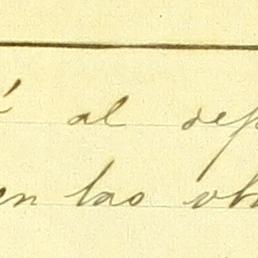 al dep
en las ob